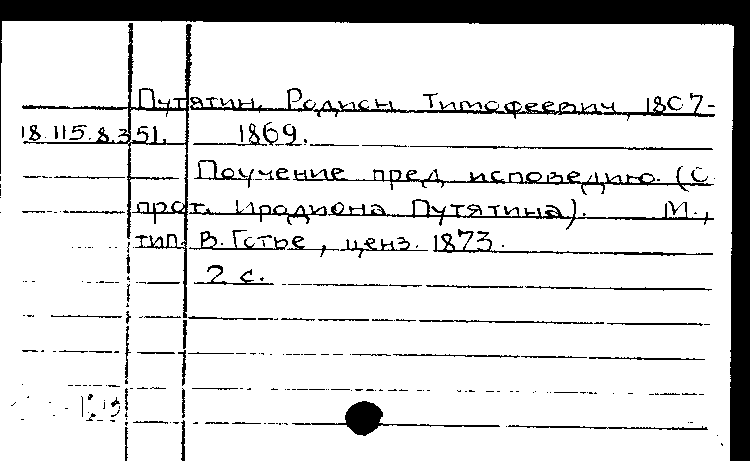 Путятин, Родион Тимофеевич, 1807-
18.115.8.351. 1869.
Поучение пред исповедию. (С
прот. Иродиона Путятина). М.,
тип. В. Готье, ценз. 1873.
2 с.